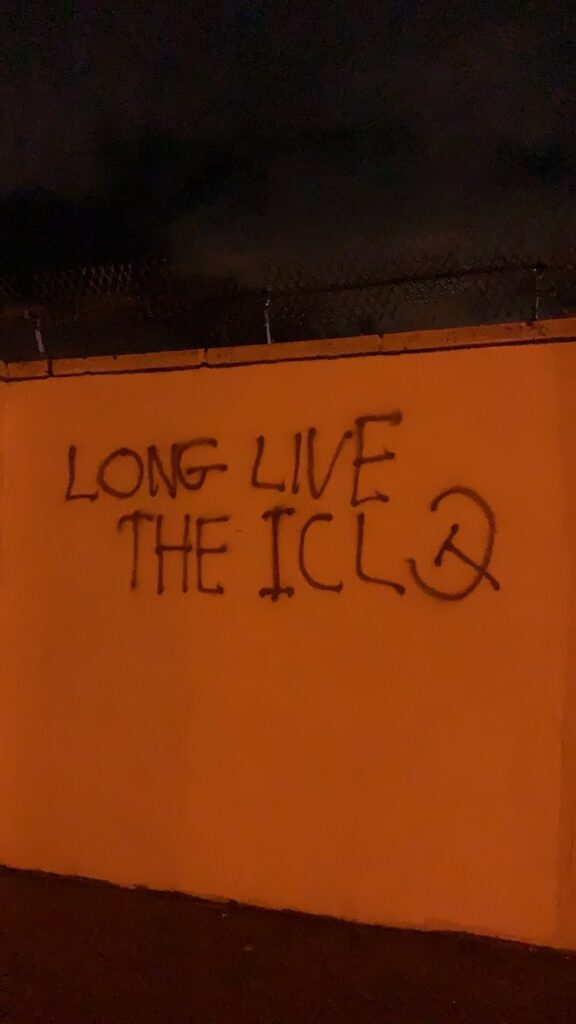 LONG LIVE
THE ICL ☭